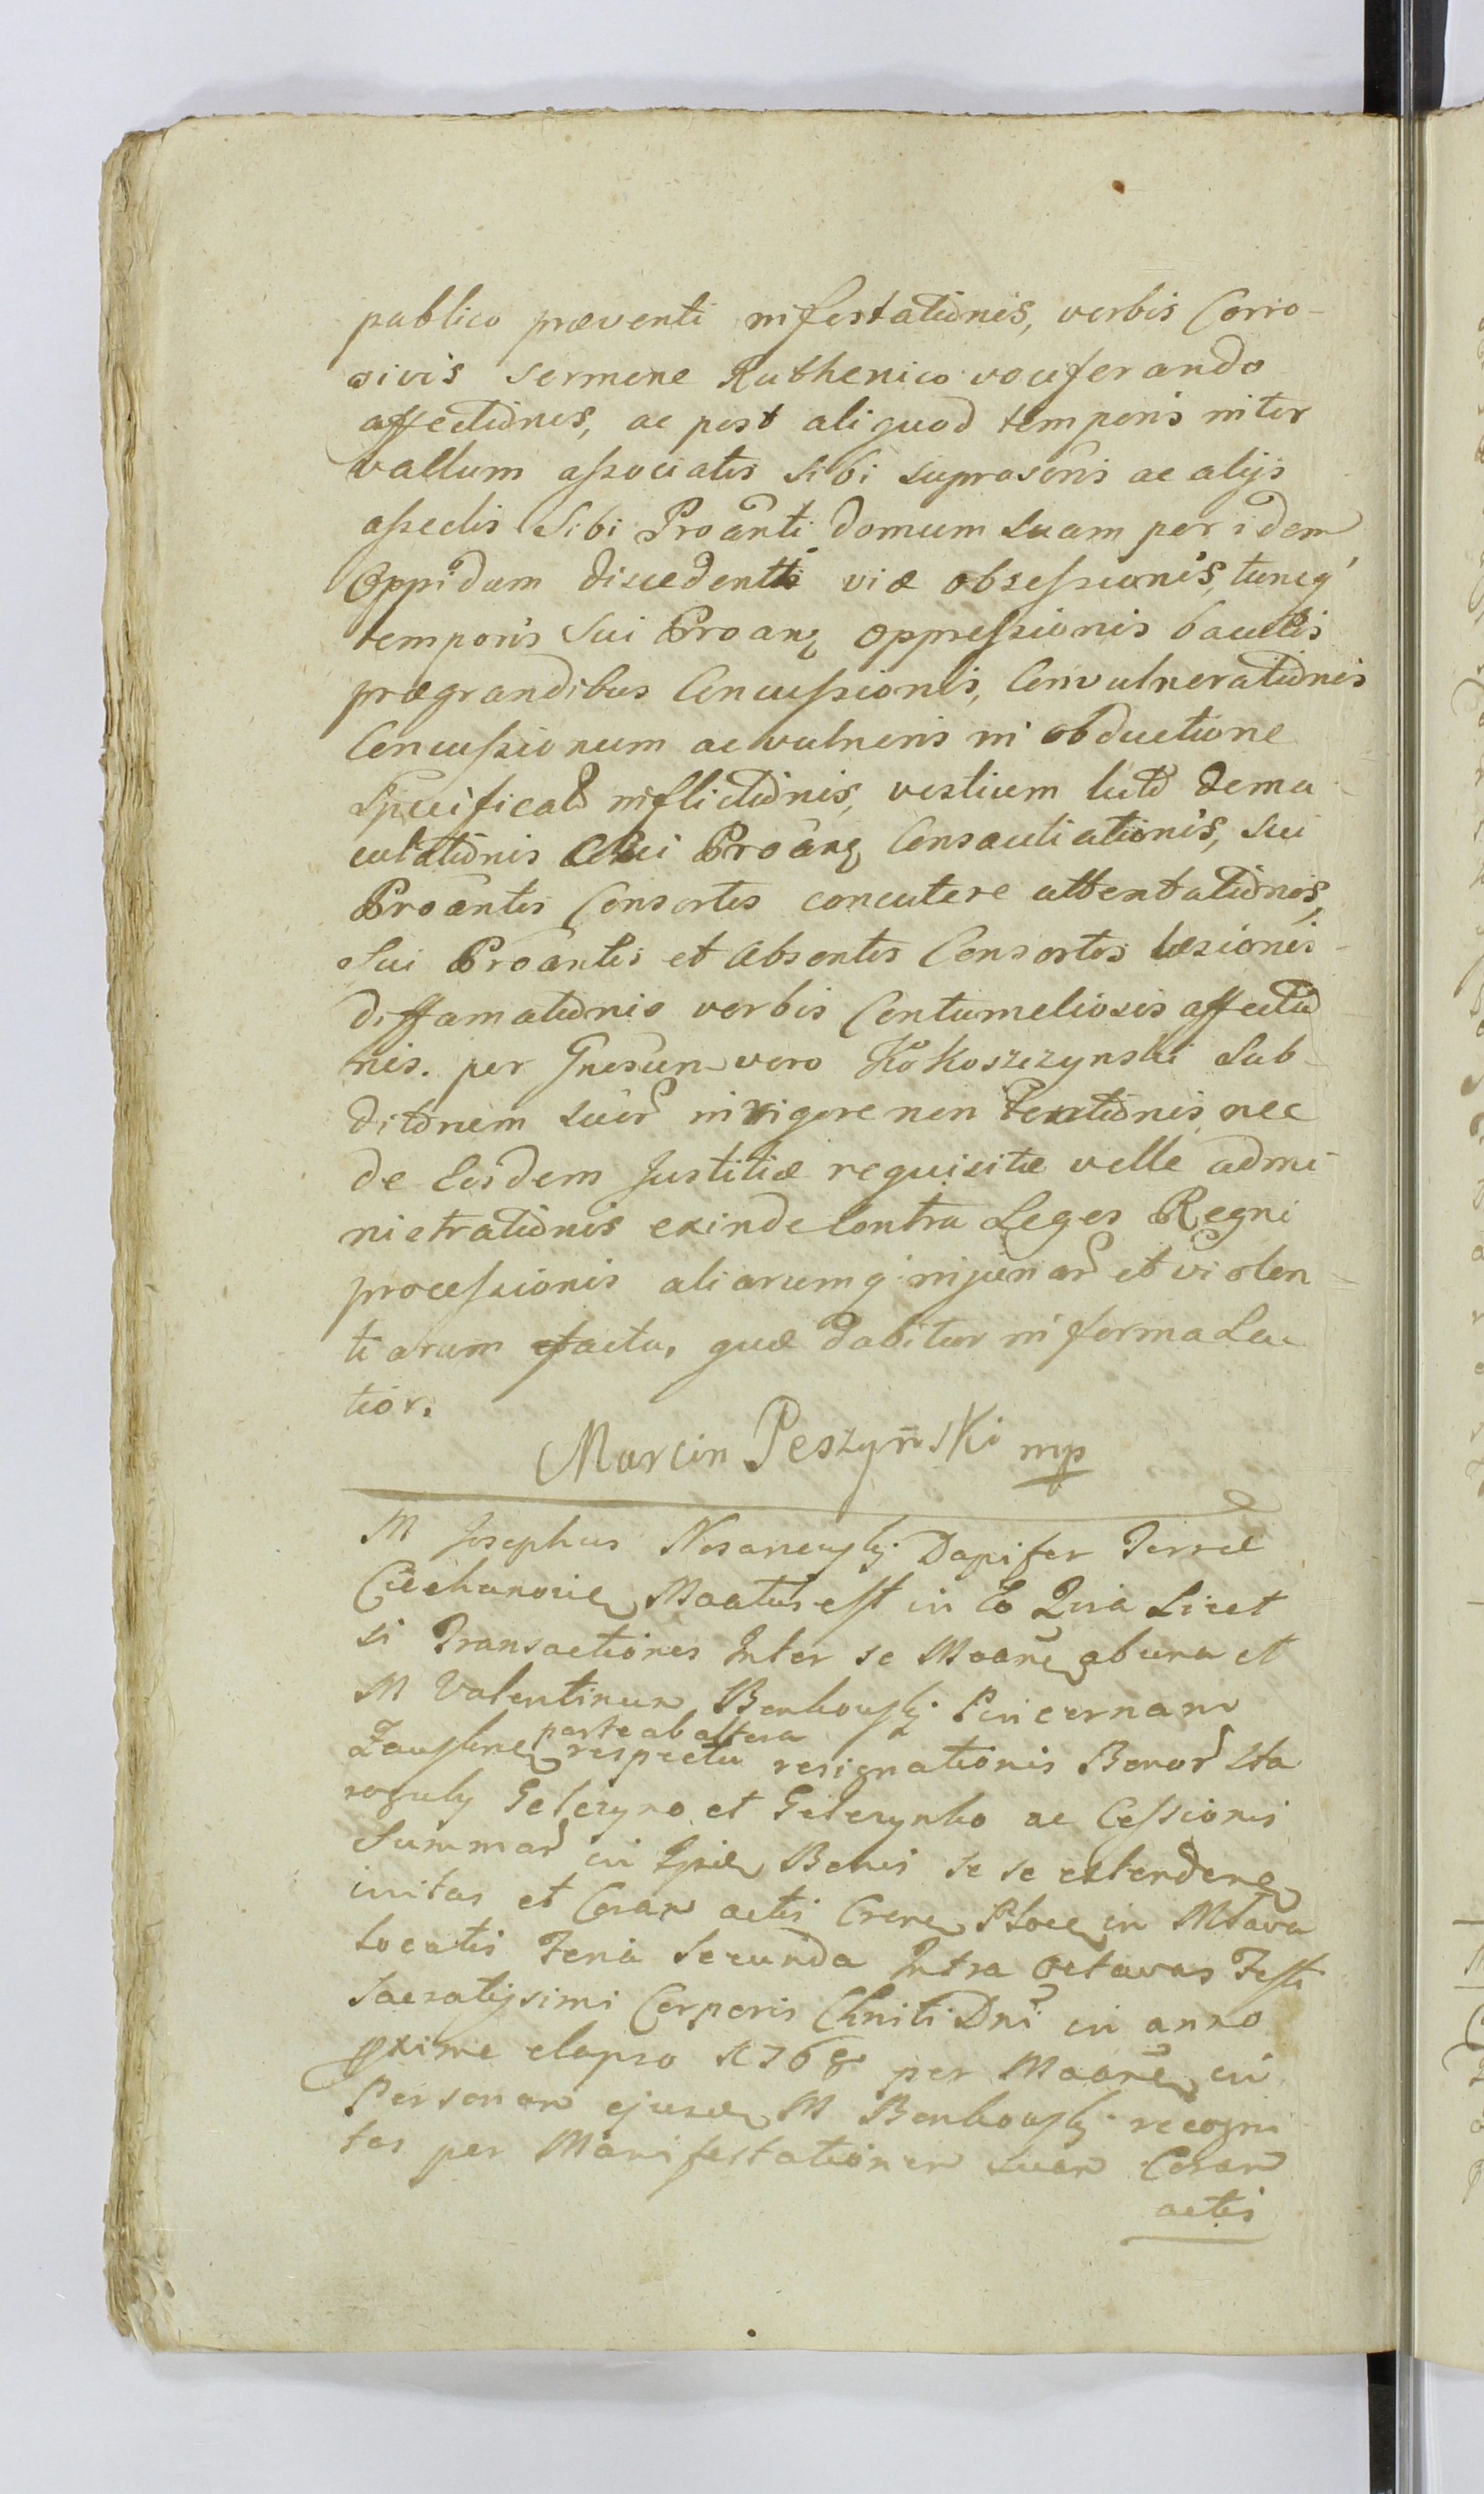 publico præventi infestationis, verbis Corro-
sivis sermone Ruthenico vociferando
affectionis, ac post aliquod temporis inter
vallum associatis sibi suprascris ac alijs
asseclis Sibi Proanti domum suam per idem
Oppidum discedenti viæ obsessionis, tuncq
temporis Sui Proanq oppressionis baculis
prægrandibus Concussionis, Convulnerationis
Concussionum ac vulneris in obductione
Specificato inflictionis, vestium luto dema
culationis Sui Proanq Consauciationis, sui
Proantis Consortis concutere attentationis,
Sui Proantis et absentis Consortis læsionis
diffamationis verbis Contumeliosis affectio
nis. per Gnosum vero Kokoszczynski Sub-
ditorum suor in rigore non tentionis, nec
de Eisdem Justitiæ requisitæ velle admi-
nistrationis exinde Contra Leges Regni
processionis aliarumq injuriar et violen
tiarum facta, quæ dabitur in forma La
tior.
Marcin Peszyński mp
M Josephus Nosarzewski Dapifer Terræ
Ciechanovien Maatus est in Eo Quia Licet
si Transactiones Inter se Maane ab una et
M Valentinum Bonkowski Pincernam
parte ab altera
respectu resignationis Bonor Sta
roguby Gelczyno et Gelczynko ac Cessionis
Summar in Ipsis Bonis se se extenden
initas et Coram actis Cren Ploce in Mlava
locatis Feria Secunda Intra octavas Festi
Sacratissimi Corporis Christi Dni in anno
pxime elapso 1768 per Maane in
Personam ejusd M Bonkowski recogni
tas per Manifestationem suam Coram
actis